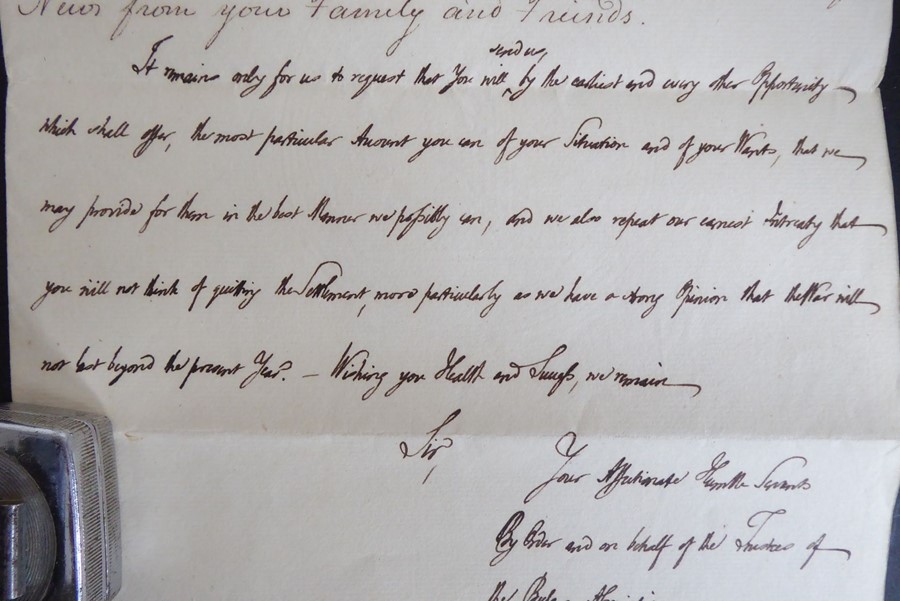 News from your Family and Friends.
send us
It remains only for us to request that You will ^ by the earliest and every other Opportunity
which shall offer, the most particular Account you can of your Situation and of your Wants, that we
may provide for them in the best Manner we possibly can, and we also repeat our earnest Intreaty that
you will not think of quitting the Settlement, more particularly as we have a strong Opinion that the War will
not last beyond the present Year. – Wishing you Health and Success, we remain
Sir,
Your Affectionate Humble Servants
By Order and on behalf of the Trustees of
the